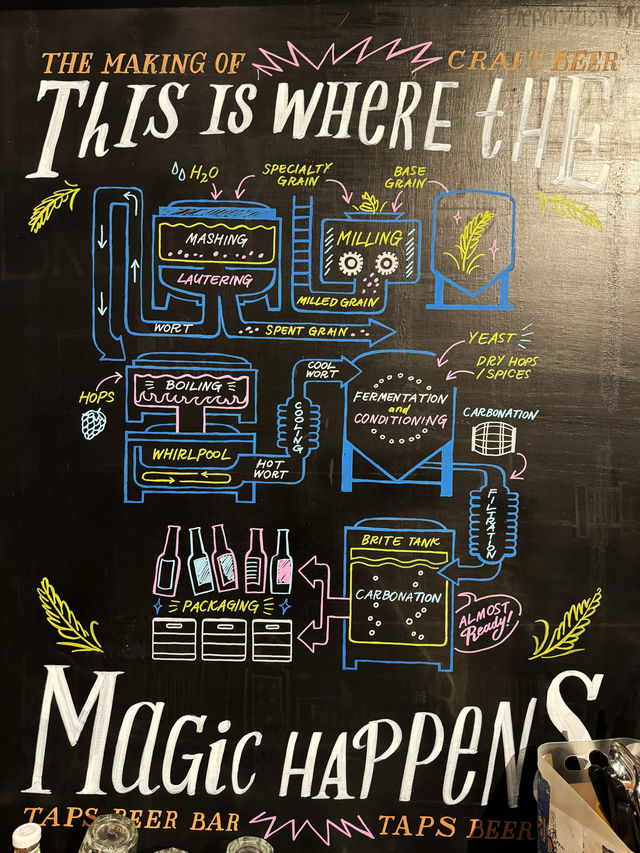 THE MAKING OF CRAFT BEER
THIS IS WHERE THE
H2O
SPECIALTY
GRAIN
BASE
GRAIN
MASHING
MILLING
LAUTERING
MILLED GRAIN
WORT
SPENT GRAIN
YEAST
DRY HOPS
/ SPICES
COOL
WORT
BOILING
HOPS
COOLING
FERMENTATION
and
CONDITIONING
CARBONATION
WHIRLPOOL
HOT
WORT
FILTRATION
BRITE TANK
CARBONATION
PACKAGING
ALMOST
Ready!
MAGIC HAPPENS
TAPS BEER BAR TAPS BEER